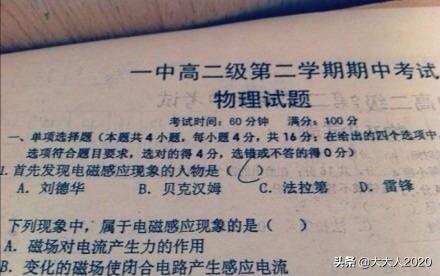 一中高二级第二学期期中考试
物理试题
考试时间：60分钟 满分：100分
一、单项选择题（本题共4小题，每小题4分，共16分；在给出的四个选项中
选项符合题目要求，选对的得4分，选错或不答的得0分）
1.首先发现电磁感应现象的人物是（ ）
A. 刘德华 B. 贝克汉姆 C. 法拉第 D. 雷锋
下列现象中，属于电磁感应现象的是（ ）
A. 磁场对电流产生力的作用
B. 变化的磁场使闭合电路产生感应电流
头条 @大大人2020